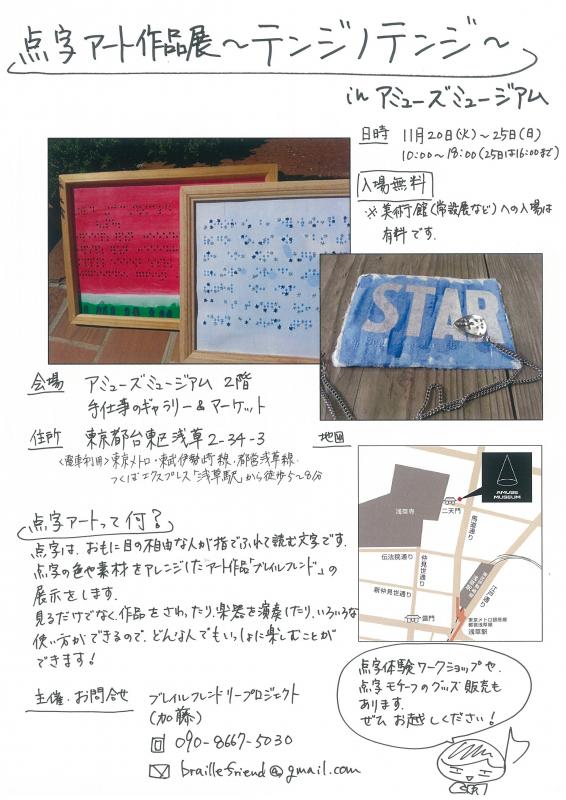 点字アート作品展～テンジノテンジ～
in アミューズミュージアム
日時 11月20日(火)～25日(日)
10:00～18:00(25日は16:00まで)
入場無料
※美術館(常設展など)への入場は
有料です。
STAR
会場 アミューズミュージアム 2階
手仕事のギャラリー&マーケット
住所 東京都台東区浅草2-34-3
<電車利用>東京メトロ・東武伊勢崎線・都営浅草線・
つくばエクスプレス「浅草駅」から徒歩5～8分
地図
AMUSE
MUSEUM
二天門
浅草寺
馬道通り
伝法院通り
仲見世通り
新仲見世通り
雷門
江戸通り
東京メトロ銀座線
都営浅草線
浅草駅
点字アートって何?
点字は、おもに目の不自由な人が指でふれて読む文字です。
点字の色や素材をアレンジしたアート作品「ブレイルフレンド」の
展示をします。
見るだけでなく作品をさわったり、楽器を演奏したり、いろいろな
使い方ができるので、どんな人でもいっしょに楽しむことが
できます!
点字体験ワークショップや、
点字モチーフのグッズ販売も
あります。
ぜひお越しください!
主催・お問合せ ブレイルフレンドリープロジェクト
(加藤)
090-8667-5030
braillefriend@gmail.com